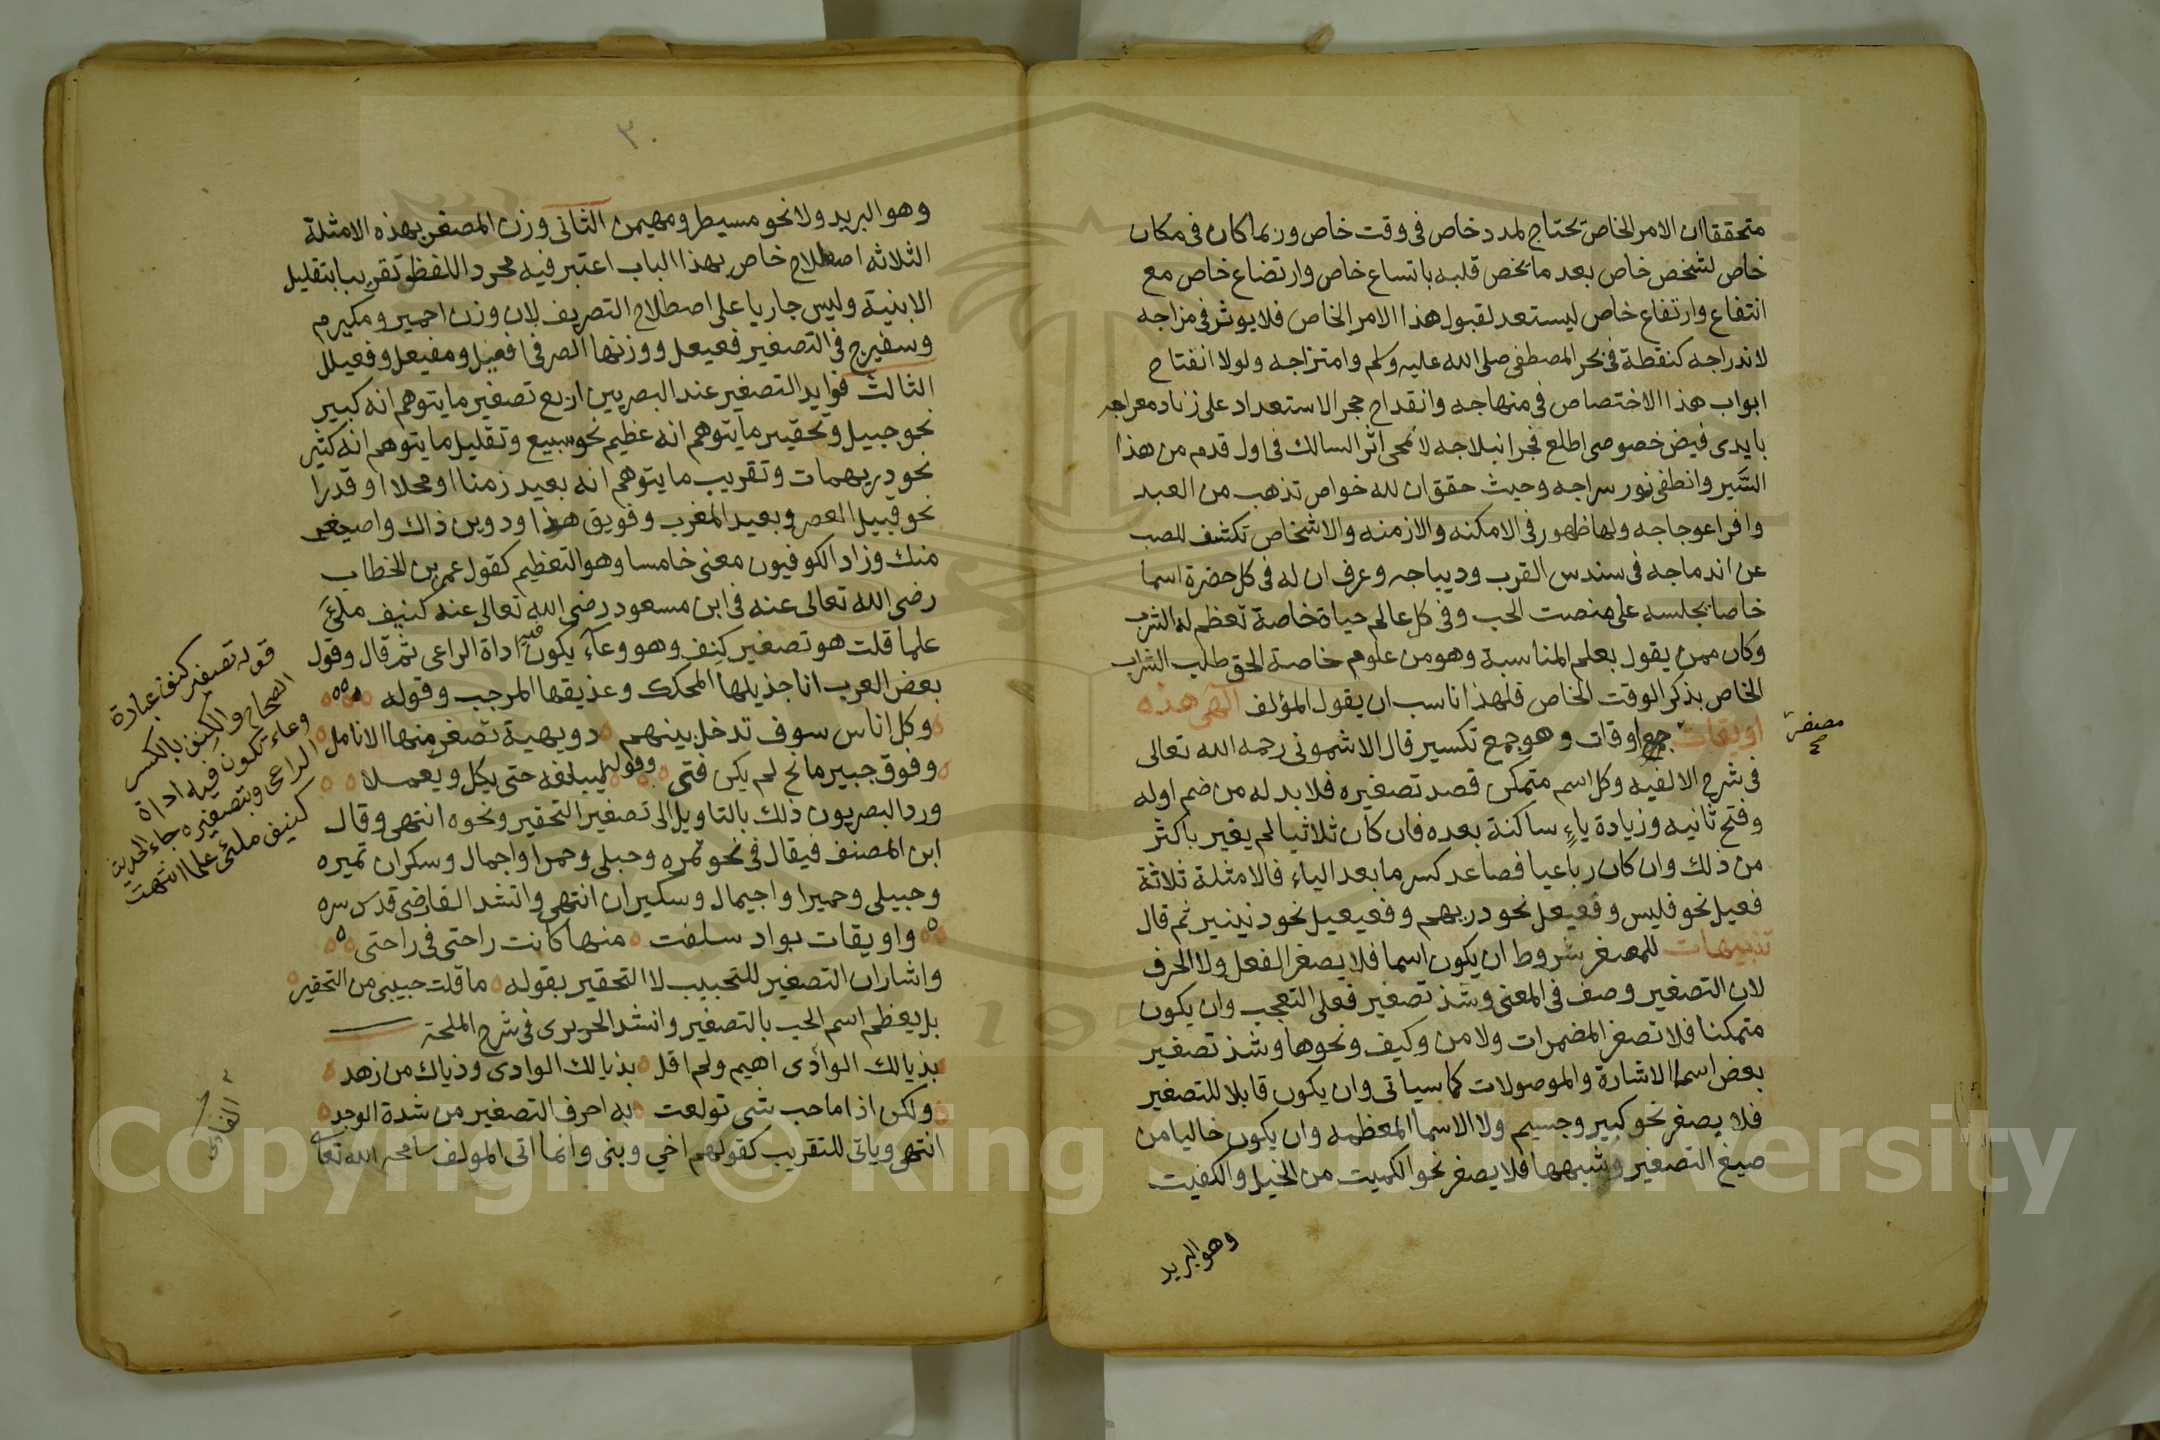 متحققا ان الامر الخاص تحتاج لمدد خاص في وقت خاص وربما كان في مكان
خاص لشخص خاص بعد ما يخص قلبه باتساع خاص وارتضاع خاص مع
انتفاع وارتفاع خاص ليستعد لقبول هذا الامر الخاص فلا يوثر في مزاجه
لاندراجه كنقطة في بحر المصطفى صلى الله عليه وسلم وامتزاجه ولولا انفتاح
ابواب هذا الاختصاص في منهاجه وانقداح حجر الاستعداد على زناد معراجه
بايدى فيض خصوصى اطلع فجر انبلاجه لانمحى اثر السالك في اول قدم من هذا
السَّير وانطفى نور سراجه وحيث حقق ان لله خواص تذهب من العبد
وافر اعوجاجه ولها ظهور في الامكنه والازمنه والاشخاص تكشف للصب
عن اندماجه في سندس القرب وديباجه وعرف ان له في كل حضرة اسما
خاصا يجلسه على منصت الحب وفي كل عالم حياة خاصة تعظم له الشرب
وكان ممن يقول بعلم المناسبة وهو من علوم خاصة الحق طلب الشراب
الخاص بذكر الوقت الخاص فلهذا ناسب ان يقول المؤلف الهى هذه
اويقات جمع اوقات وهو جمع تكسير قال الاشمونى رحمه الله تعالى
مصغرة صح
في شرح الالفيه وكل اسم متمكن قصد تصغيره فلا بد له من ضم اوله
وفتح ثانيه وزيادة ياءٍ ساكنة بعده فان كان ثلاثيا لم يغير باكثر
من ذلك وان كان رباعيا فصاعد كسر ما بعد الياء فالامثلة ثلاثة
فعيل نحو فليس وفعيعل نحو دريهم وفعيعيل نحو دنينير ثم قال
تنبيهات للمصغر شروط ان يكون اسما فلا يصغر الفعل ولا الحرف
لان التصغير وصف في المعنى وشذ تصغير فعلى التعجب وان يكون
متمكنا فلا تصغر المضمرات ولا من وكيف ونحوها وشذ تصغير
بعض اسما الاشارة والموصولات كما سياتى وان يكون قابلا للتصغير
فلا يصغر نحو كبير وجسيم ولا الاسما المعظمه وان يكون خاليا من
صيغ التصغير وشبهها فلا يصغر نحو الكميت من الخيل والكفيت
وهو البريد
٣٠
وهو البريد ولا نحو مسيطر ومهيمن الثانى وزن المصغر بهذه الامثلة
الثلاثه اصطلاح خاص بهذا الباب اعتبر فيه مجرد اللفظ تقريبا بتقليل
الابنية وليس جاريا على اصطلاح التصريف لان وزن احمير ومكيرم
وسفيرج في التصغير فعيعل ووزنها الصرفى افعيل ومفيعل وفعيلل
الثالث فوايد التصغير عند البصريين اربع تصغير ما يتوهم انه كبير
نحو جبيل وتحقير ما يتوهم انه عظيم نحو سبيع وتقليل ما يتوهم انه كثير
نحو دريهمات وتقريب ما يتوهم انه بعيد زمنا او محلا او قدرا
نحو قبيل العصر وبعيد المغرب وفويق هذا ودوين ذاك واصيغر
منك وزاد الكوفيون معنى خامسا وهو التعظيم كقول عمر بن الخطاب
رضى الله تعالى عنه في ابن مسعود رضى الله تعالى عنه كنيف ملئ
علما قلت هو تصغير كنِف وهو وعآء يكون فيه اداة الراعى ثم قال وقول
بعض العرب انا جذيلها المحكك وعذيقها المرجب وقوله
وكل اناس سوف تدخل بينهم دويهية تصغر منها الانامل
وقوله
وفوق جبير مانح لم يكن فتى ليبلغه حتى يكل ويعملا
ورد البصريون ذلك بالتاويل الى تصغير التحقير ونحوه انتهى وقال
ابن المصنف فيقال في نحو تمره وحبلى وحمرا واجمال وسكران تميره
وحبيلى وحميرا واجيمال وسكيران انتهى وانشد الفارضى قدس سره
واويقات بواد سلفت منها كانت راحتى في راحتى
واشار ان التصغير للتحبيب لا التحقير بقوله ما قلت حبيبى من التحقير
بل يعظم اسم الحب بالتصغير وانشد الحريرى في شرح الملحة
بذيالك الوادى اهيم ولم اقل بذيالك الوادى وذياك من زهد
ولكن اذا ما حب شى تولعت به احرف التصغير من شدة الوجد
انتهى وياتى للتقريب كقولهم اخي وبنى وانما اتى المولف سامحه الله تعالى
قوله تصغير كنف عبارة
الصحاح والكِنف بالكسر
وعاء تكون فيه اداة
الراعى وبتصغيره جاء الحديث
كنيف ملئ علما انتهت
Copyright © King Saud University